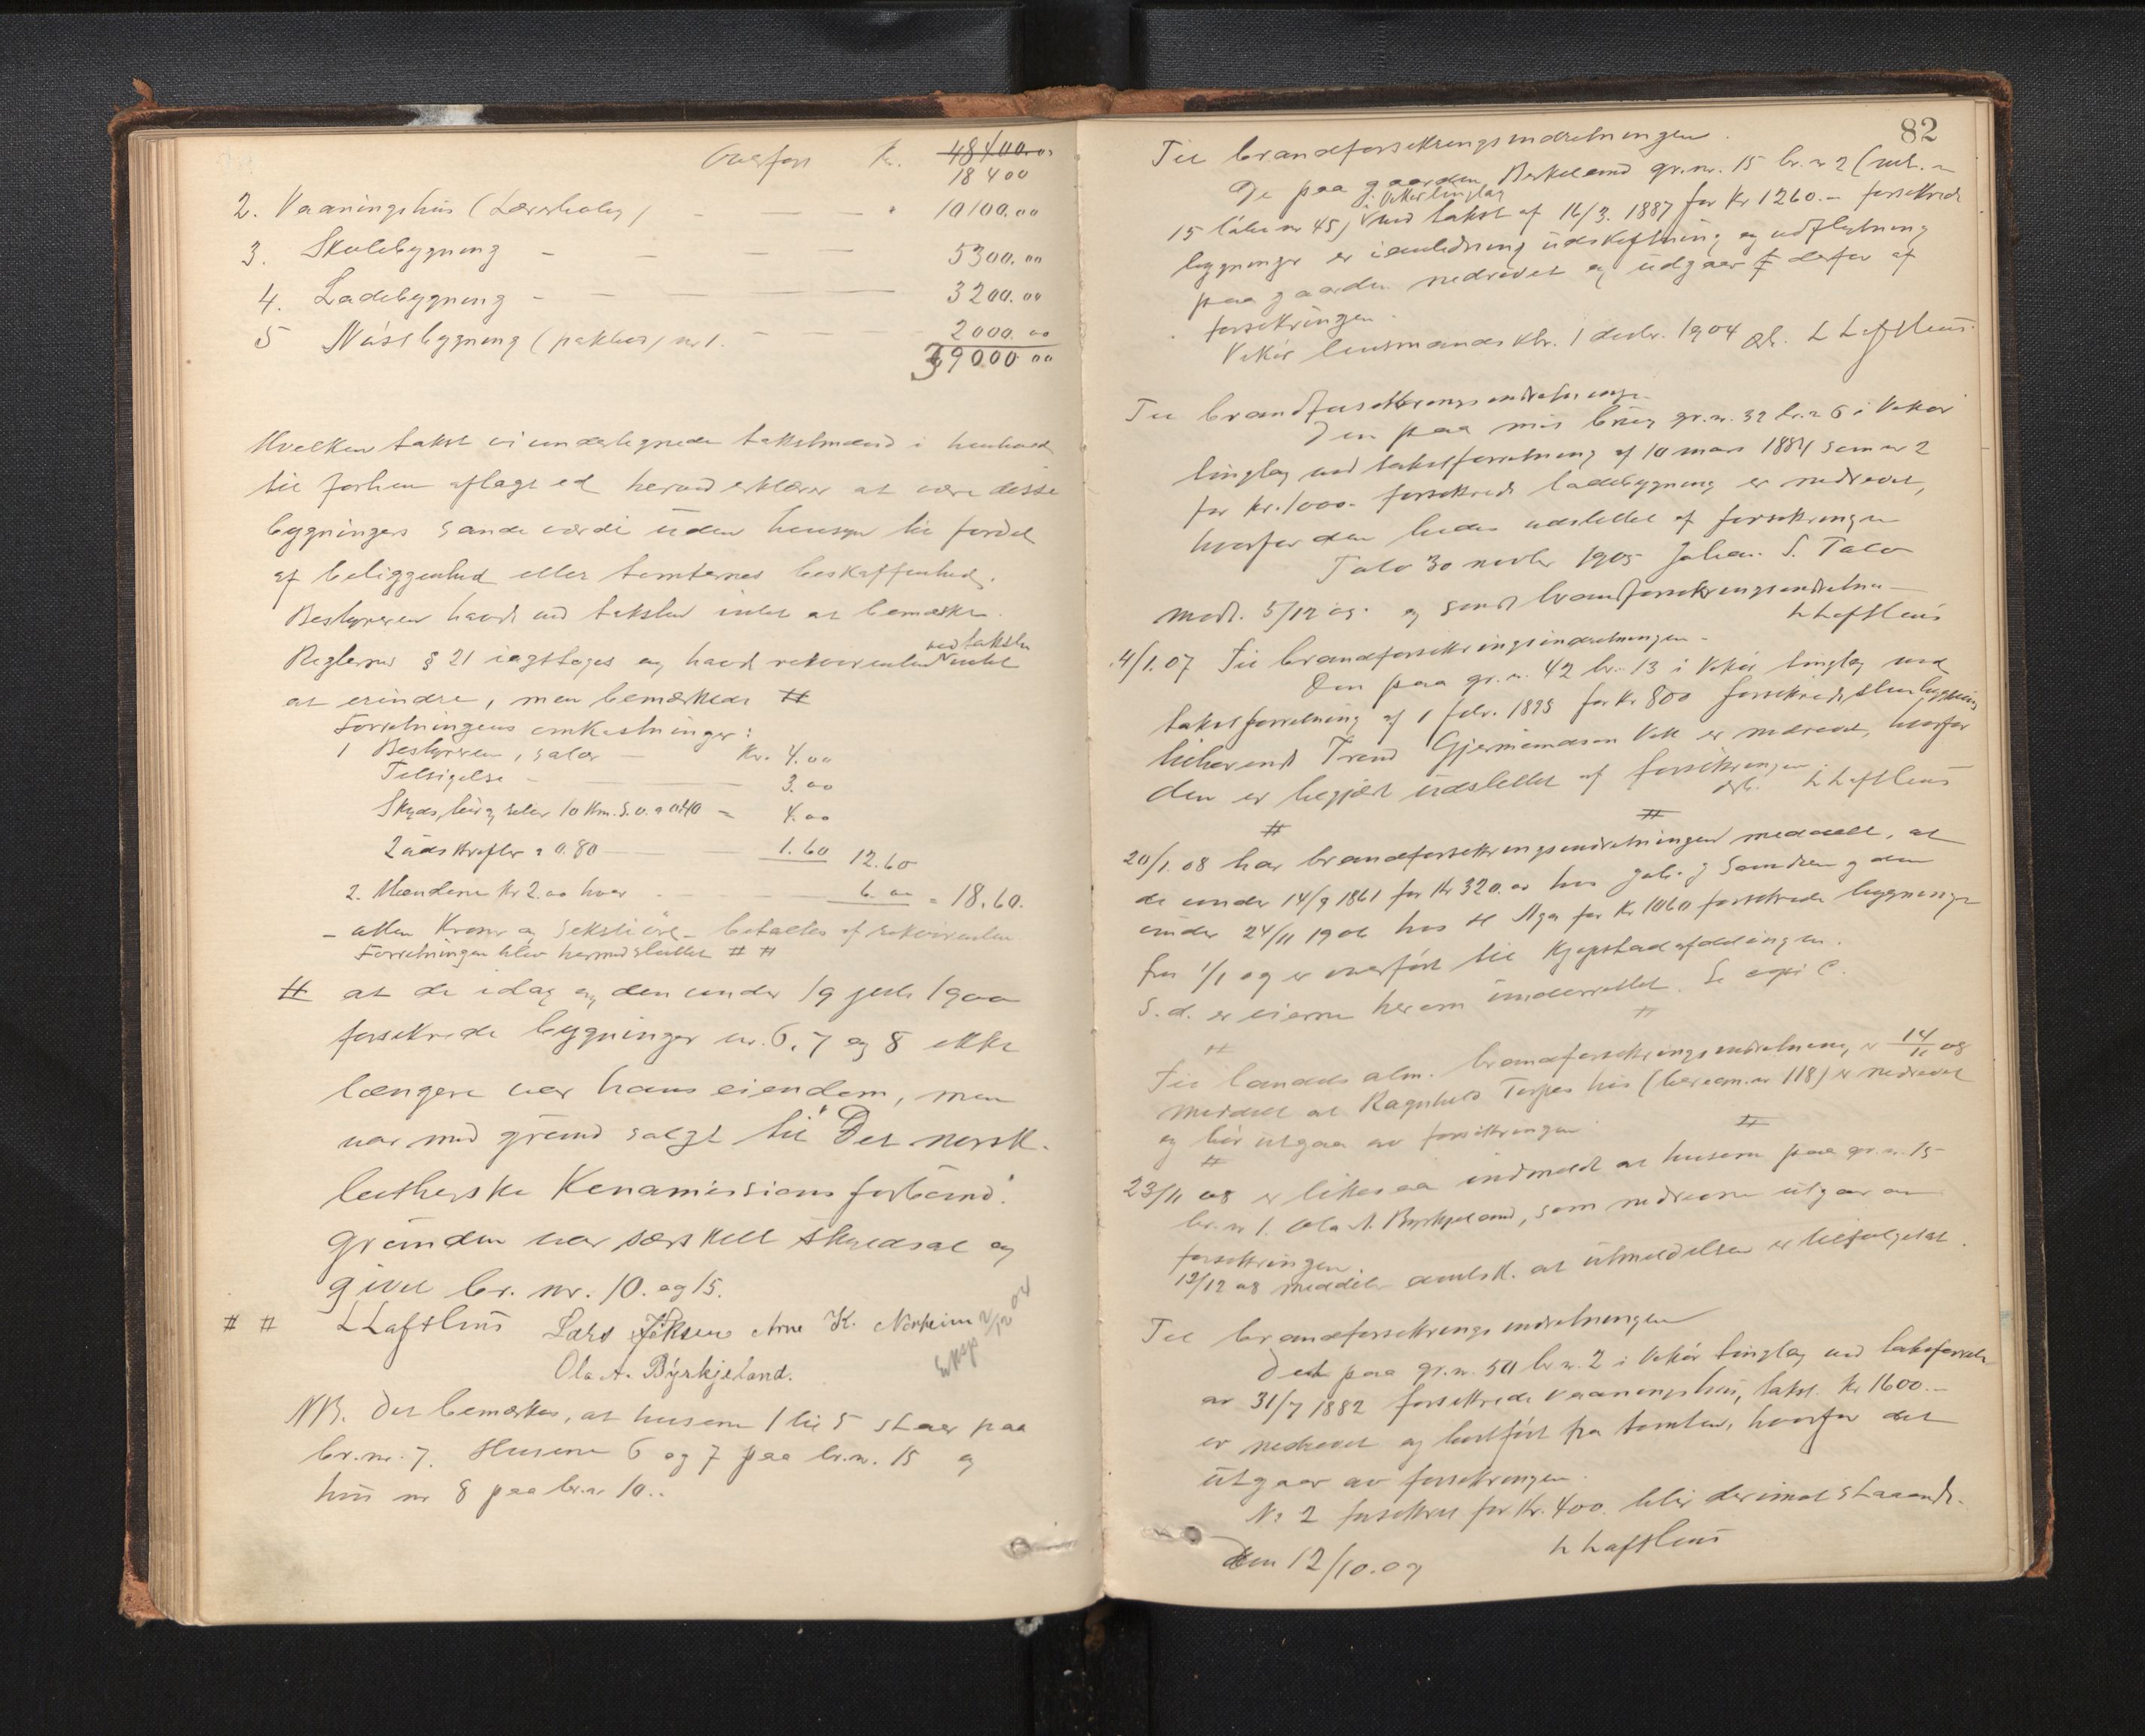 Overført Kr. 48400.00
18400
2. Vaaningshus (Lærerbolig) - — — - 10100.00
3. Skolebygning - — — — 5300.00
4. Ladebygning - — — — 3200.00
5 Nástbygning (pakhus) nr 1. - — — 2000.00
39000 00
Hvilken takst vi undertegnede takstmænd i henhold
til forhen aflagt ed herved erklærer at være disse
bygningers sande værdi uden hensyn til fordel
af beliggenhed eller tomternes beskaffenhed.
Bestyreren havde ved taksten intet at bemærke.
Reglernes § 21 iagttoges og havde rekvirenten ved taksten intet
at erindre, men bemærkede #
Forretningens omkostninger:
1 Bestyreren, salær — Kr. 4.00
Tilsigelse - — 3.00
Skyds, 10 Km. à 0.40 = 4.00
2 udskrifter a 0.80 — 1.60 12.60
2. Mændene Kr 2.00 hver - — 6.00 = 18.60.
- atten Kroner og sekstiøre - betaltes af rekvirenten.
Forretningen blev hermed sluttet # #
# at de idag og den under 19 juli 1900
forsikrede bygninger nr. 6, 7 og 8 ikke
længere var hans eiendom, men
var med grund solgt til "Det norsk-
lutherske Kinamissionsforbund".
Grunden var særskilt skyldsat og
givet br. nr. 10. og 15.
# # L Lofthus Lars Arne K. Norheim
Ola A. Byrkjeland. Eksp 2/12 04
NB. Det bemærkes, at husene 1 til 5 staar paa
br.nr. 7. Husene 6 og 7 paa br.n. 15 og
hus nr 8 paa br.nr 10..
82
Til brandforsikringsindretningen.
De paa gaarden Berkeland gr.nr. 15 br.nr 2 (mt. n
15 løbenr 45) i Vikør tinglag ved takst af 16/3. 1887 for Kr 1260.- forsikrede
bygninger er i anledning udskiftning og udflytning
paa gaarden nedrevet og udgaar derfor af
forsikringen.
Vikør lensmandsktr. 1 decbr. 1904 L Lofthus
Til brandforsikringsindretningen.
Den paa mit brug gr.n. 32 br.n 6 i Vikør
tinglag ved takstforretning af 10 mars 1884 som nr 2
for Kr. 1000.- forsikrede ladebygning er nedrevet,
hvorfor den bedes udslettet af forsikringen
30 novbr 1905 Johan S.
Modt. 5/12 05. og sendt brandforsikringsindretnin-
L Lofthus
4/1.07 Til brandforsikringsindretningen.
Den paa gr.n. 42 br.n 13 i Vikør tinglag ved
takstforretning af 1 febr. 1895 for Kr 800 forsikrede
tilhørende Trond Gjermundsen Vik er nedrevet, hvorfor
den er begjært udslettet af forsikringen.
L Lofthus
# #
20/1.08 har brandforsikringsindretningen meddelt, at
de under 14/9 1861 for Kr 320.00 hos Samdsen og den
under 24/11 1906 hos Aga for Kr 1060 forsikrede bygninger
fra 1/1 09 er overført til Kjøpstadafdelingen.
S. d. er eierne herom underrettet. Se copi C.
# #
Til landets alm. brandforsikringsindretning, er 14/11 08
meddelt at Ragnhild hus (nr 118) er nedrevet
og bør utgaa av forsikringen.
# #
23/11 08 er likesaa indmeldt at husene paa gr.n. 15
br.nr 1. Ola A. Byrkjeland, som nedrevne utgaar av
forsikringen.
12/12 08 meddeler amtsk. at utmeldelsen er tilfølgetat.
Til brandforsikringsindretningen
Det paa gr.n. 50 br.n. 2 i Vikør tinglag ved takstforretn
av 31/7 1882 forsikrede vaaningshus, takst Kr 1600.-
er nedrevet og bortført fra tomten, hvorfor det
utgaar av forsikringen.
Nr 2 forsikret for Kr. 400. blir derimot staaende.
Den 12/10.09 L Lofthus